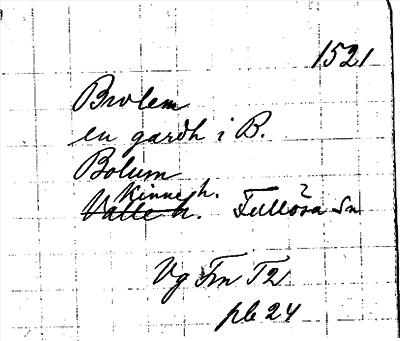 1521
Brolem
en gardh i B.
Bolum
Kinneh.
Valleh. Fullösa Sn
Vg Frn T2
pb 24